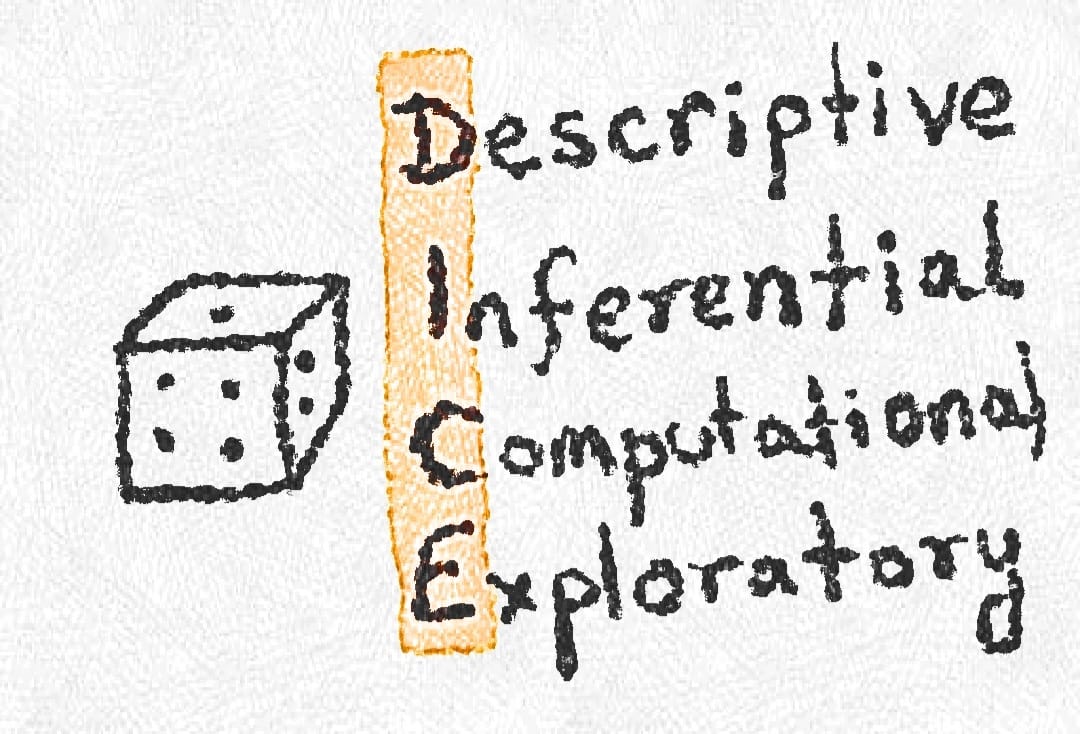 Descriptive
Inferential
Computational
Exploratory